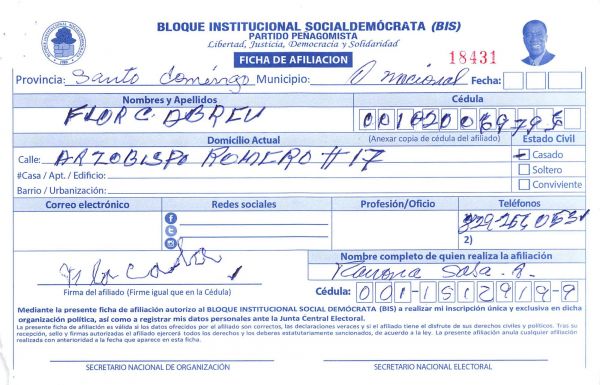 BLOQUE INSTITUCIONAL SOCIALDEMÓCRATA (BIS)
PARTIDO PEÑAGOMISTA
Libertad, Justicia, Democracia y Solidaridad
FICHA DE AFILIACION
18431
Provincia: Santo Domingo Municipio: D nacional Fecha:
Nombres y Apellidos
Cédula
FLOR C. ABREU
Domicilio Actual
(Anexar copia de cédula del afiliado)
Estado Civil
Calle: ARZOBISPO ROMERO # 17
Casado
#Casa / Apt. / Edificio:
Soltero
Barrio / Urbanización:
Conviviente
Correo electrónico
Redes sociales
Profesión/Oficio
Teléfonos
2)
Nombre completo de quien realiza la afiliación
Ramona Sosa
Firma del afiliado (Firme igual que en la Cédula)
Cédula: 001-1512919-9
Mediante la presente ficha de afiliación autorizo al BLOQUE INSTITUCIONAL SOCIAL DEMÓCRATA (BIS) a realizar mi inscripción única y exclusiva en dicha
organización política, así como a registrar mis datos personales ante la Junta Central Electoral.
La presente ficha de afiliación es válida si los datos ofrecidos por el afiliado son correctos, las declaraciones veraces y si el afiliado tiene el disfrute de sus derechos civiles y políticos. Tras su
recepción, sello y firmas autorizadas el afiliado ejercerá todos los derechos y los deberes estatutariamente sancionados, de acuerdo a la ley. La presente afiliación anula cualquier afiliación
realizada con anterioridad a la fecha que aparece en esta ficha.
SECRETARIO NACIONAL DE ORGANIZACIÓN
SECRETARIO NACIONAL ELECTORAL